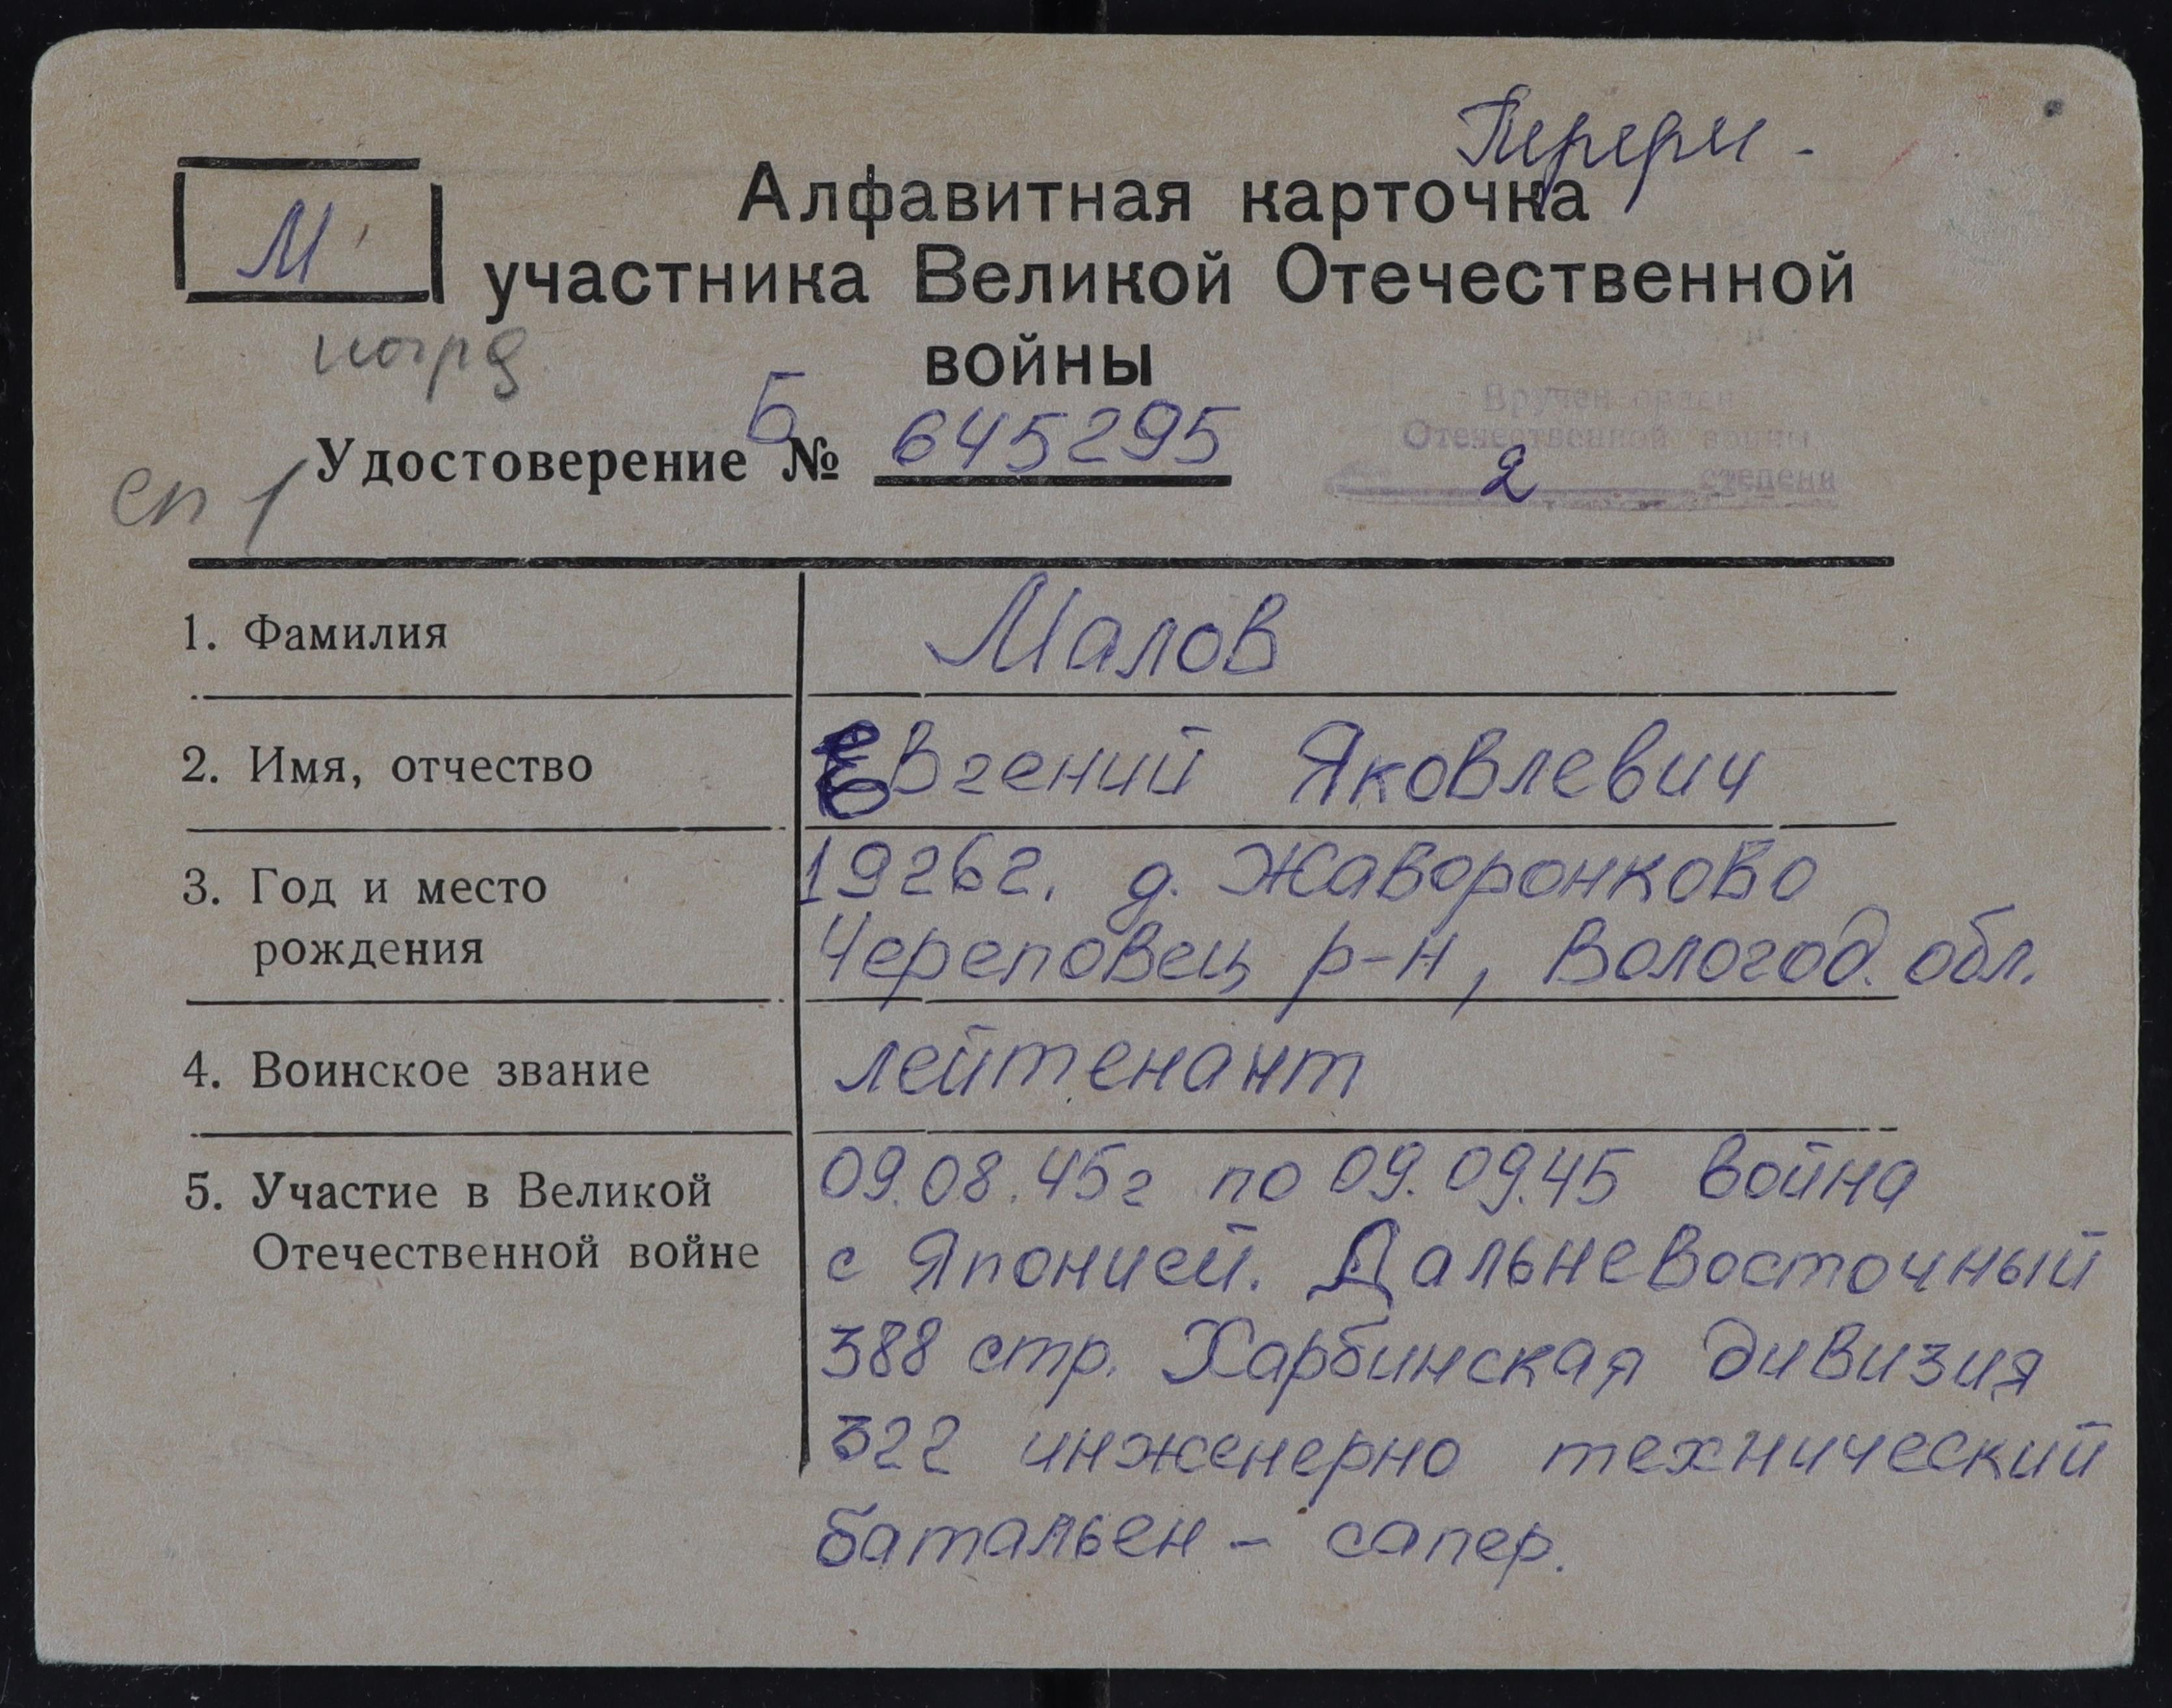 Алфавитная карточка
М
участника Великой Отечественной
войны
нагр
Удостоверение Б № 645295
Вручен орден
Отечественной войны
2 степени
сп 1
1. Фамилия Малов
2. Имя, отчество Евгений Яковлевич
3. Год и место 1926г. д. Жаворонково
рождения Череповец р-н, Вологод. обл.
4. Воинское звание лейтенант
5. Участие в Великой 09.08.45г по 09.09.45 война
Отечественной войне с Японией. Дальневосточный
388 стр. Харбинская дивизия
322 инженерно технический
батальен - сапер.